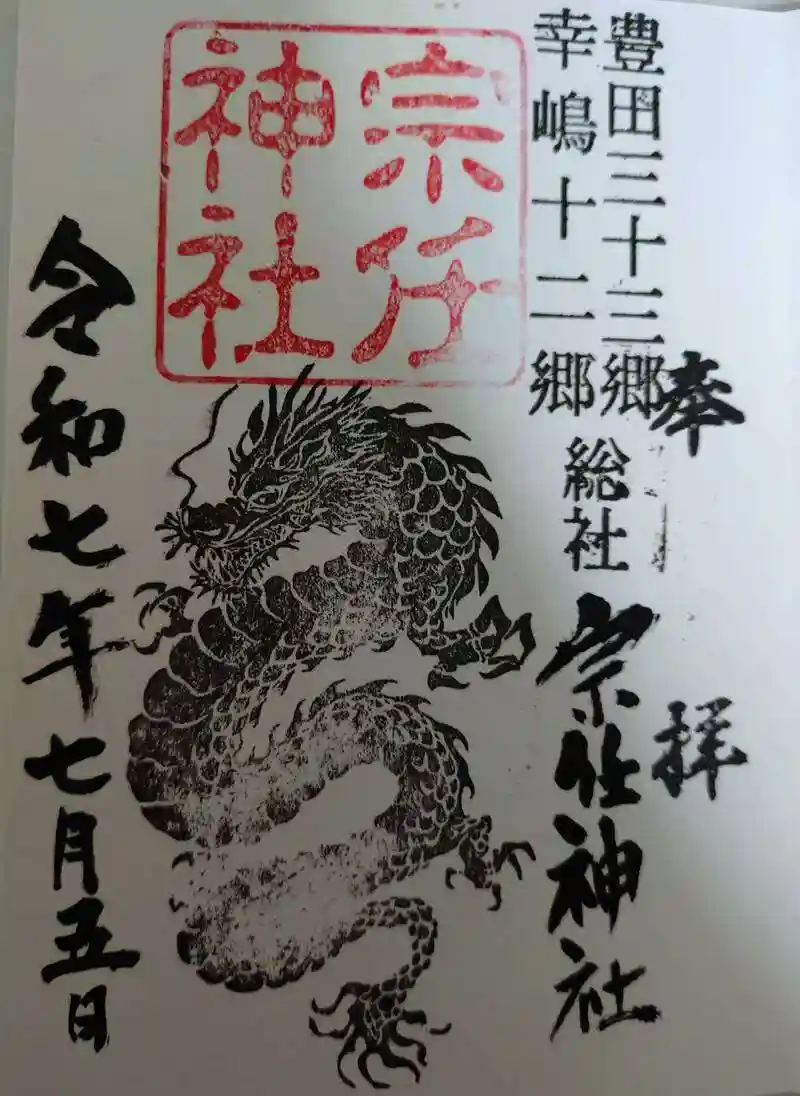 奉拝
豊田三十三郷
幸嶋十二郷
総社
宗任神社
宗任
神社
令和七年七月五日